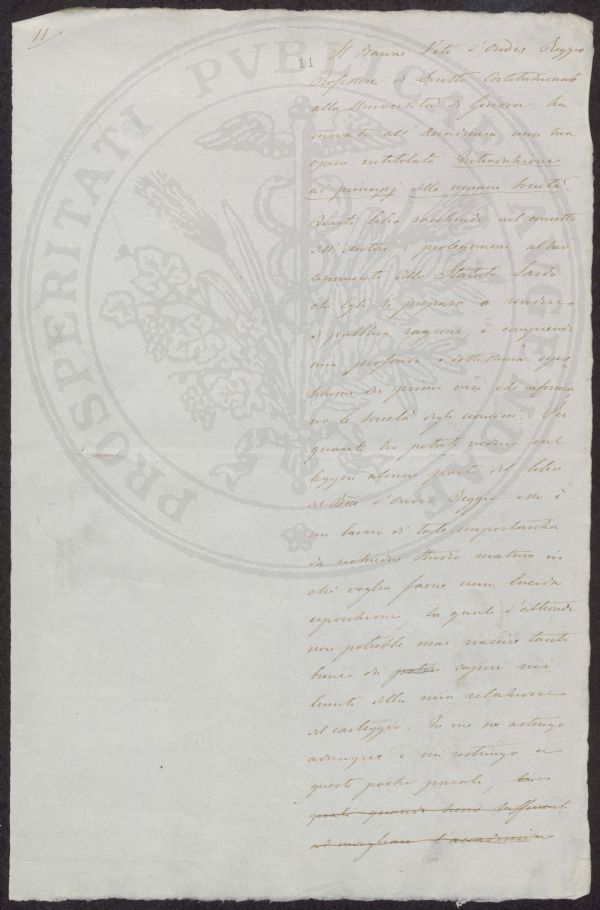 11
11
Il Barone Vito d'Ondes Reggio
Professore di Diritto Costituzionale
alla Università di Genova ha
inviato all' Accademia una sua
opera intitolata Introduzione
ai principj delle umane Società.
Questo libro racchiude nel concetto
dell'autore i prolegomeni al suo
comento dello Statuto Sardo
che Egli si prepara a rendere
di pubblica ragione, e comprende
una profonda e
dei primi veri che informa
no le società degli uomini. Per
quanto ho potuto vedere nel
leggere alcune parti del libro
del Bne d'Ondes Reggio esso è
un lavoro di tale importanza
da richiedere studio maturo in
chi voglia farne una lucida
esposizione, la quale d'altronde
non potrebbe mai riuscire tanto
breve da capire nei
limiti della mia relazione
del carteggio. Io me ne astengo
adunque e mi restringo a
queste poche parole, le
quali quando sieno
ad invogliare l'accademia
PROSPERITATI PVBLICAE AVGENDAE